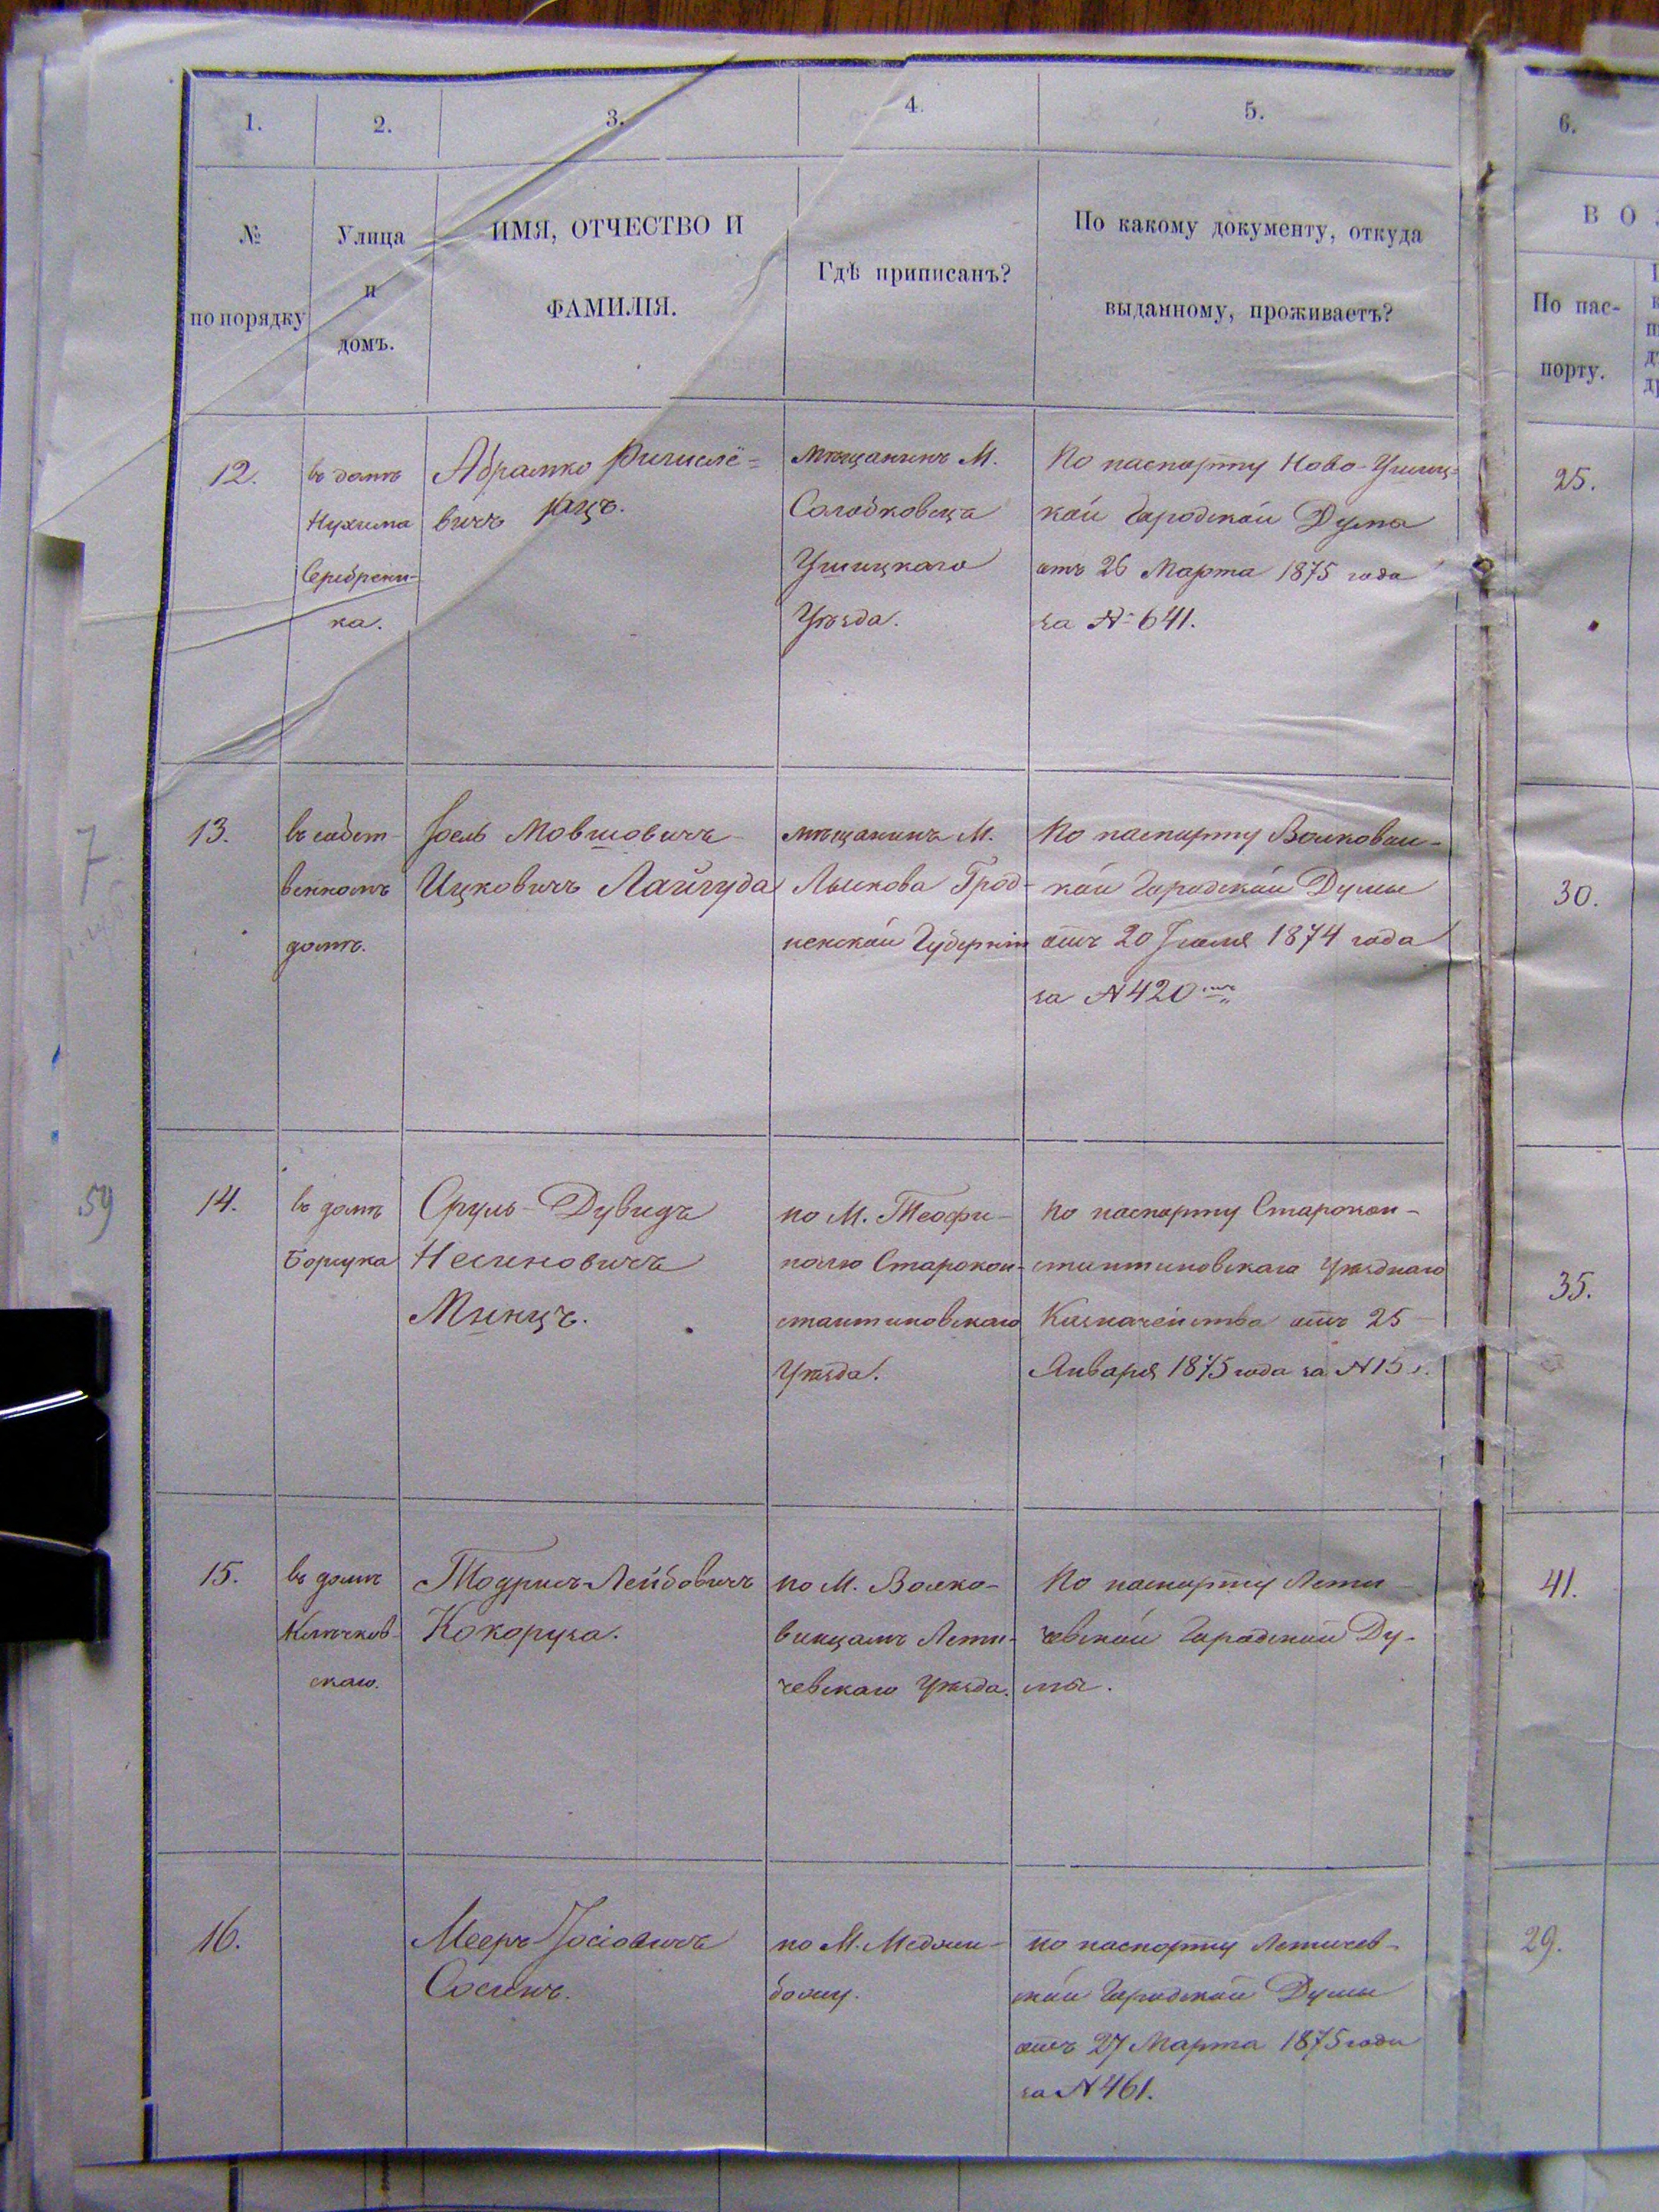 1.
2.
3.
4.
5.
6.
№
по порядку
Улица
и
домъ.
ИМЯ, ОТЧЕСТВО И
ФАМИЛІЯ.
Гдѣ приписанъ?
По какому документу, откуда
выданному, проживаетъ?
В О
По пас-
порту.
12.
въ домѣ
Нухима
Серебрени-
ка.
Абрамко
вичъ Кацъ.
мѣщанинъ М.
Солобковецъ
Ушицкаго
Уѣзда.
По паспорту Ново-Ушиц-
кой Городской Думы
отъ 26 Марта 1875 года
за № 641.
25.
7
13.
въ собст-
венномъ
домѣ.
Іоель Мовшовичъ
Ицковичъ Лайгуда
мѣщанинъ М.
Лыскова Грод-
ненской Губерніи
По паспорту Волковыс-
кой Городской Думы
отъ 20 Іюля 1874 года
за № 420
30.
59
14.
въ домѣ
Борщука
Сруль-Дувидъ
Несиновичъ
Минцъ.
по М. Теофи-
полю Старокон-
стантиновскаго
Уѣзда.
по паспорту Старокон-
стантиновскаго Уѣзднаго
Казначейства отъ 25
Января 1875 года за № 15
35.
15.
въ домѣ
скаго.
Тодрисъ Лейбовичъ
Кокоруза.
по М. Волко-
винцамъ Лети-
чевскаго Уѣзда.
По паспорту Лети-
чевской Городской Ду-
мы.
41.
16.
Мееръ Іосіовичъ
Сосинъ.
по М. Меджи-
божу.
по паспорту Летичев-
ской Городской Думы
отъ 27 Марта 1875 года
за № 461.
29.